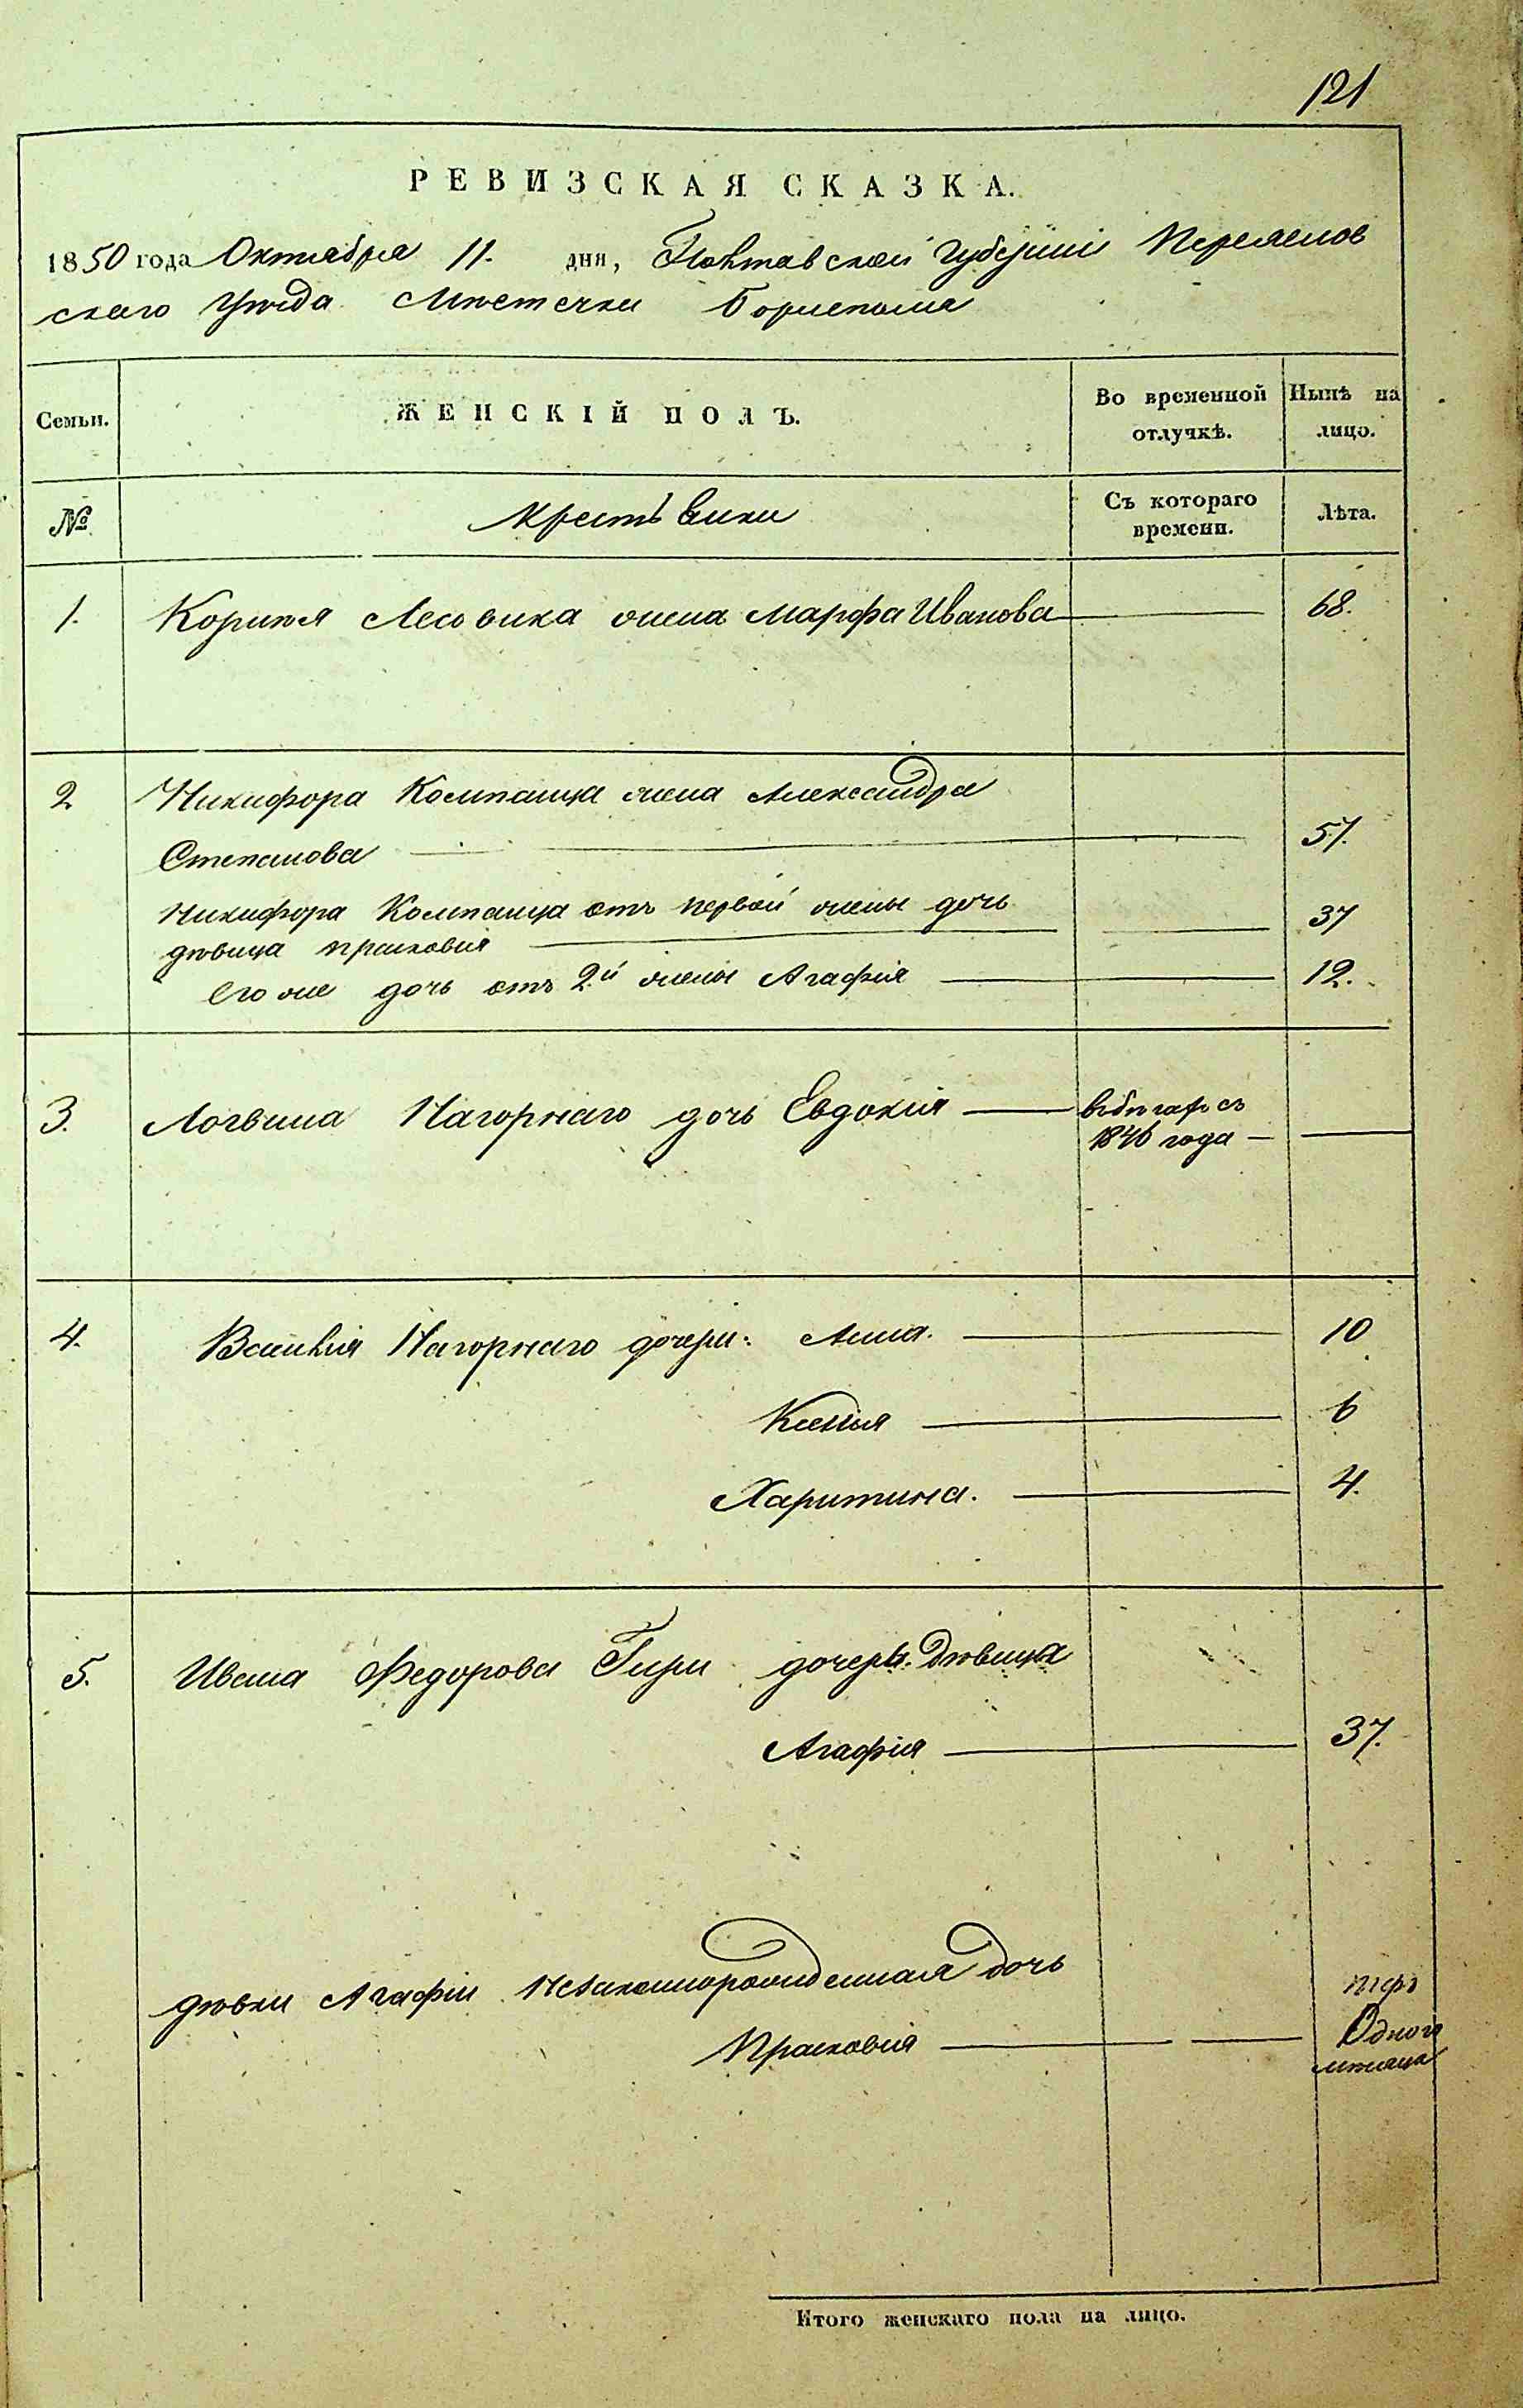 121
РЕВИЗСКАЯ СКАЗКА.
1850 года Октября 11. дня, Полтавской Губерніи Переяслов
скаго Уѣзда Мѣстечка Борисполя
Семьи.
ЖЕНСКІЙ ПОЛЪ.
Во временной отлучкѣ.
Нынѣ на лицо.
№
Крестьянки
Съ котораго времени.
Лѣта.
1. Корнѣя Лесовика жена Марфа Иванова 68.
2 Никифора Компанца жена Александра
Степанова 57.
Никифора Компанца отъ первой жены дочь
дѣвица Прасковія 37
его же дочь отъ 2й жены Агафія 12.
3. Логвина Нагорнаго дочь Евдокія въ бѣгахъ съ
1846 года
4. Василія Нагорнаго дочери: Анна. 10
Ксенія 6
Харитина. 4.
5. Ивана Федорова Гири дочерь: Дѣвица
Агафія 37.
дѣвки Агафіи Незаконнорожденная дочь
Прасковія Одного
мѣсяца
Итого женскаго пола на лицо.